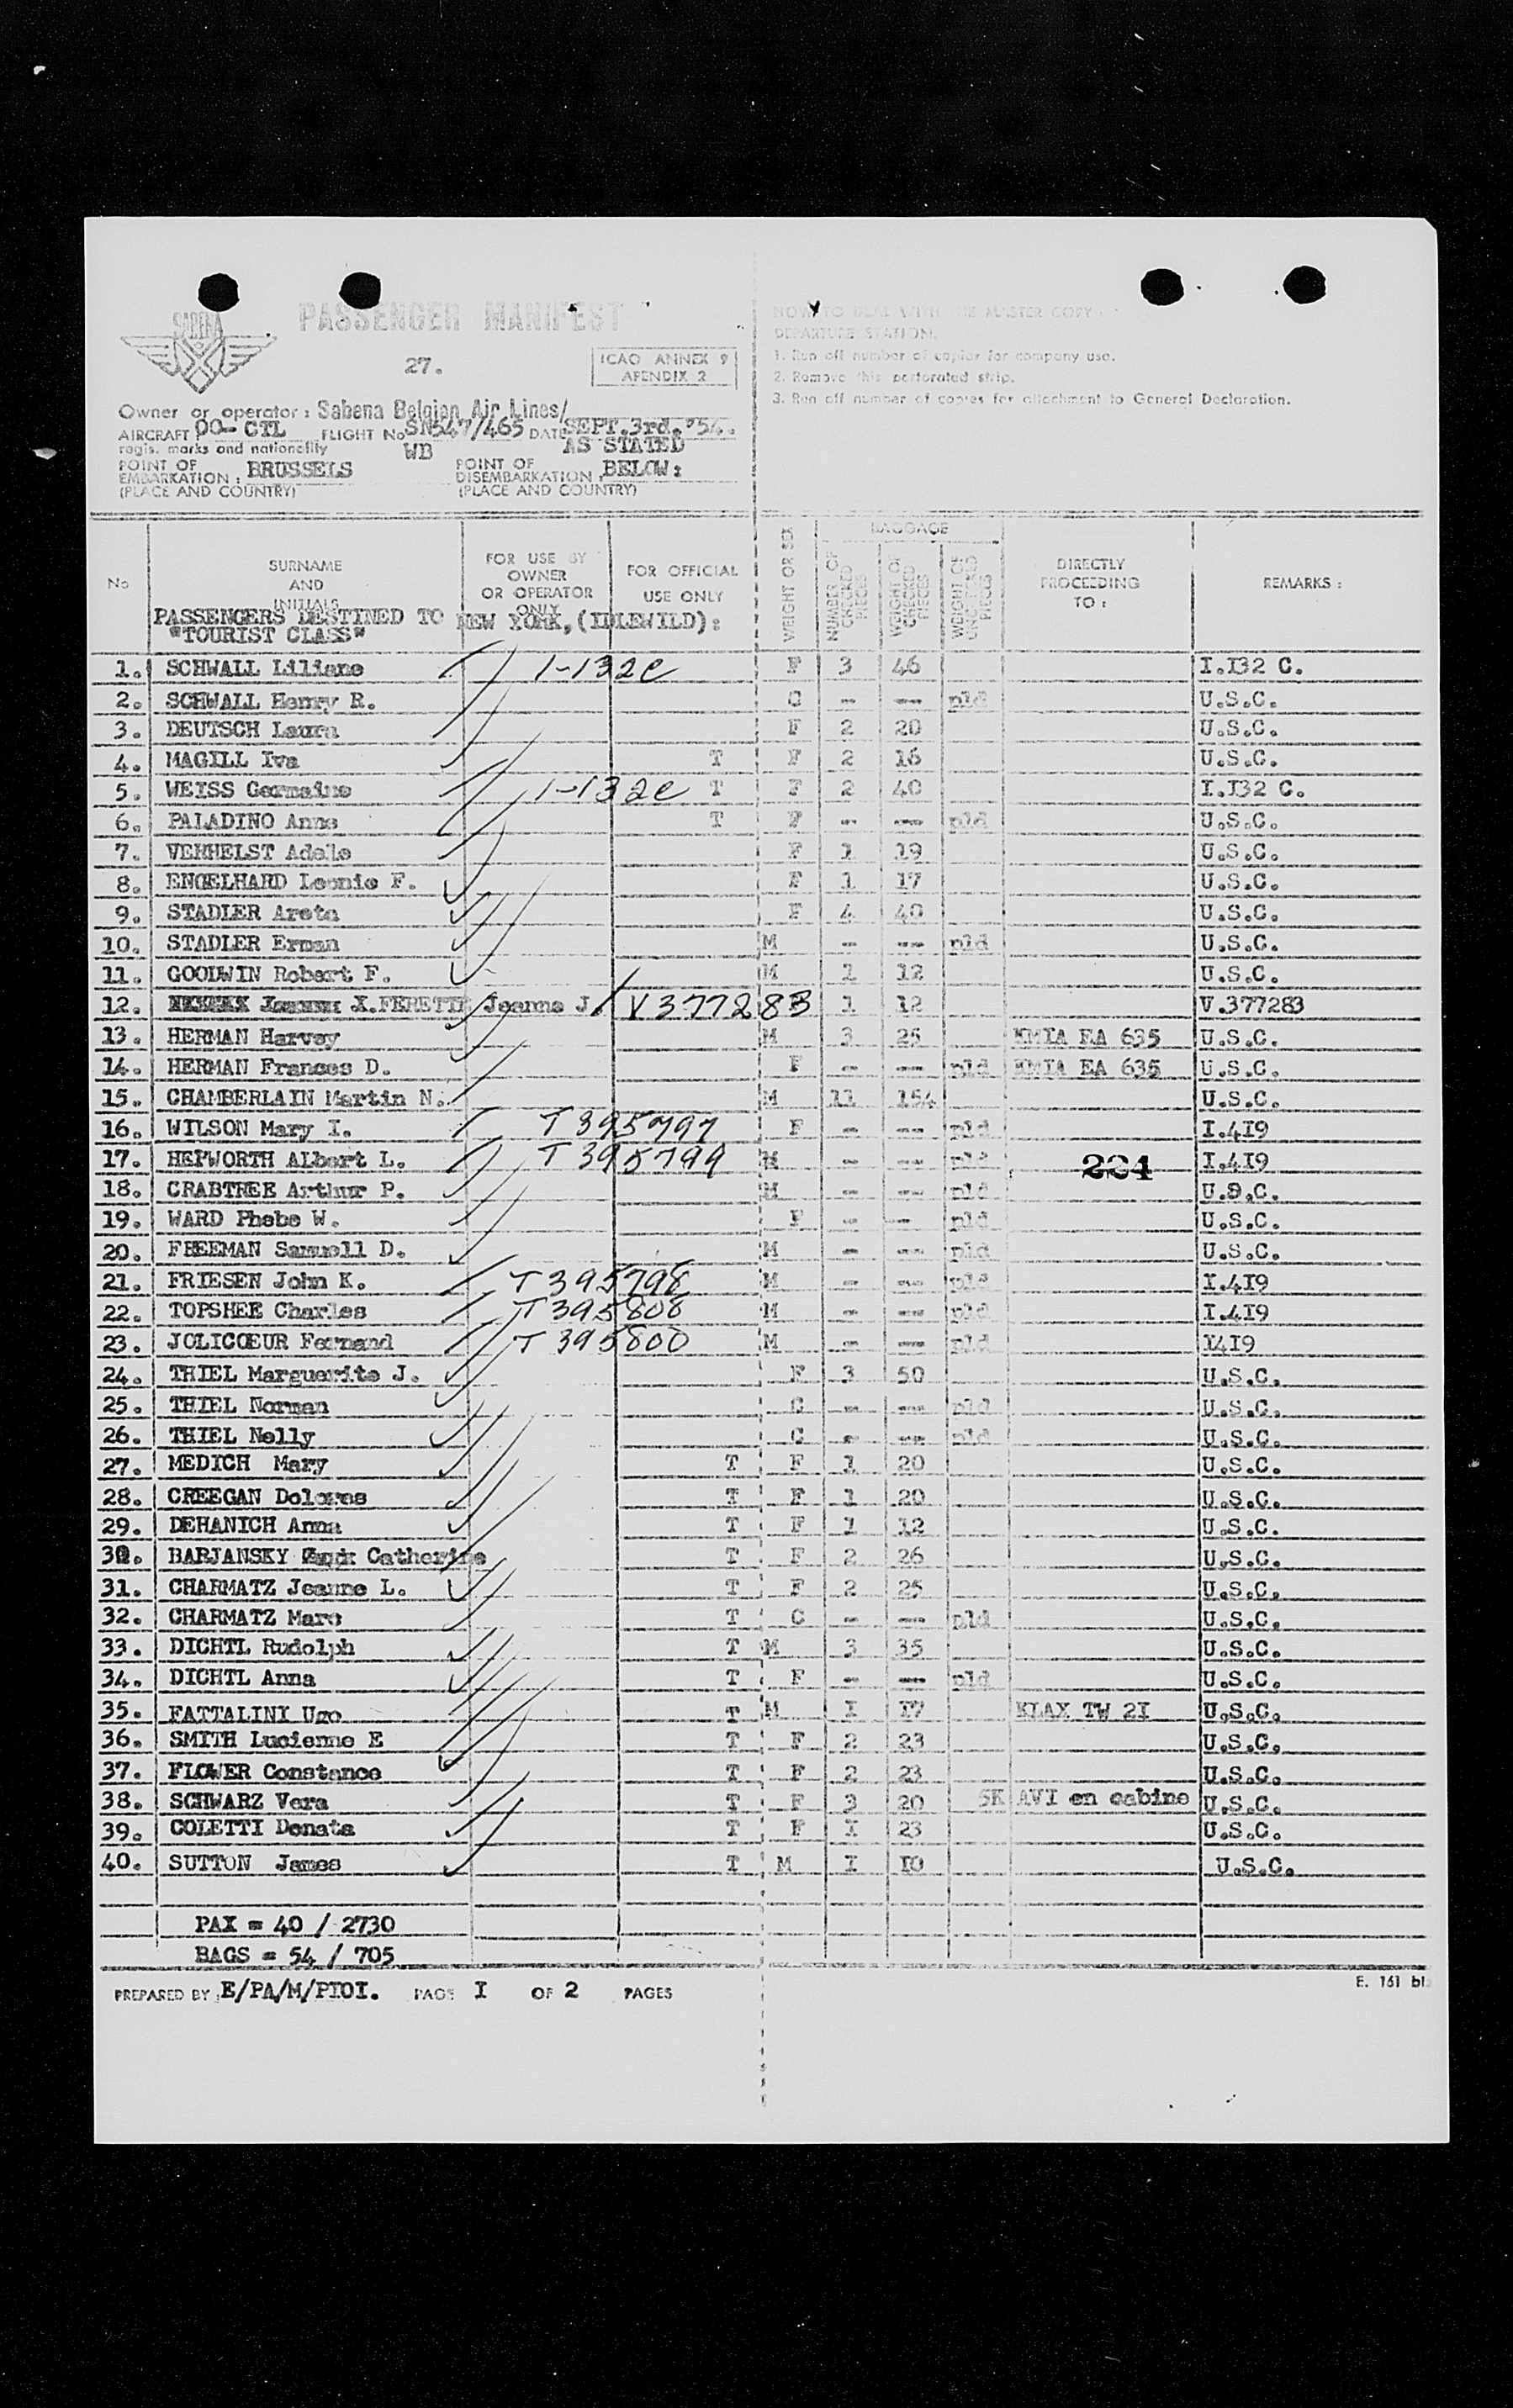 SABENA
PASSENGER MANIFEST
27.
ICAO ANNEX 9
APENDIX 2
Owner or operator: Sabena Belgian Air Lines/
AIRCRAFT OO-CTL FLIGHT No SN547/465 DATE SEPT.3rd.°54.
regis. marks and nationality WB AS STATED
POINT OF EMBARKATION: BRUSSELS POINT OF DISEMBARKATION: BELOW:
(PLACE AND COUNTRY) (PLACE AND COUNTRY)
HOW TO DEAL WITH THE MASTER COPY
DEPARTURE STATION.
1. Run off number of copies for company use.
2. Remove this perforated strip.
3. Run off number of copies for attachment to General Declaration.
No SURNAME AND INITIALS FOR USE BY OWNER OR OPERATOR ONLY FOR OFFICIAL USE ONLY WEIGHT OR SEX BAGGAGE NUMBER OF CHECKED PIECES WEIGHT OF CHECKED PIECES WEIGHT OF UNCHECKED PIECES DIRECTLY PROCEEDING TO: REMARKS:
PASSENGERS DESTINED TO NEW YORK, (IDLEWILD):
"TOURIST CLASS"
1. SCHWALL Liliane 1-132c F 3 46 I.I32 C.
2. SCHWALL Henry R. C - -- pld U.S.C.
3. DEUTSCH Laura F 2 20 U.S.C.
4. MAGILL Iva T F 2 16 U.S.C.
5. WEISS Germaine 1-132c T F 2 40 I.I32 C.
6. PALADINO Anne T F - -- pld U.S.C.
7. VERHELST Adele F 1 19 U.S.C.
8. ENGELHARD Leonie F. F 1 17 U.S.C.
9. STADLER Areta F 4 40 U.S.C.
10. STADLER Erman M - -- pld U.S.C.
11. GOODWIN Robert F. M 1 12 U.S.C.
12. X.FERETTE Jeanne J. V377283 1 12 V.377283
13. HERMAN Harvey M 3 25 KMIA EA 635 U.S.C.
14. HERMAN Frances D. F - -- pld KMIA EA 635 U.S.C.
15. CHAMBERLAIN Martin N. M 11 154 U.S.C.
16. WILSON Mary I. T395797 F - -- pld I.4I9
17. HEPWORTH Albert L. T395799 M - -- pld 224 I.4I9
18. CRABTREE Arthur P. M - -- pld U.S.C.
19. WARD Phebe W. F - -- pld U.S.C.
20. FREEMAN Samuell D. M - -- pld U.S.C.
21. FRIESEN John K. T395798 M - -- pld I.4I9
22. TOPSHEE Charles T395808 M - -- pld I.4I9
23. JOLICŒUR Fernand T395800 M - -- pld I4I9
24. THIEL Marguerite J. F 3 50 U.S.C.
25. THIEL Norman C - -- pld U.S.C.
26. THIEL Nelly C - -- pld U.S.C.
27. MEDICH Mary T F 1 20 U.S.C.
28. CREEGAN Dolores T F 1 20 U.S.C.
29. DEHANICH Anna T F 1 12 U.S.C.
30. BARJANSKY Catherine T F 2 26 U.S.C.
31. CHARMATZ Jeanne L. T F 2 25 U.S.C.
32. CHARMATZ Marc T C - -- pld U.S.C.
33. DICHTL Rudolph T M 3 35 U.S.C.
34. DICHTL Anna T F - -- pld U.S.C.
35. FATTALINI Ugo T M I I7 KLAX TW 2I U.S.C.
36. SMITH Lucienne E T F 2 23 U.S.C.
37. FLOWER Constance T F 2 23 U.S.C.
38. SCHWARZ Vera T F 3 20 5K AVI en cabine U.S.C.
39. COLETTI Donata T F I 23 U.S.C.
40. SUTTON James T M I I0 U.S.C.
PAX = 40 / 2730
BAGS = 54 / 705
PREPARED BY: E/PA/M/PIOI. PAGE I OF 2 PAGES
E. 161 bis